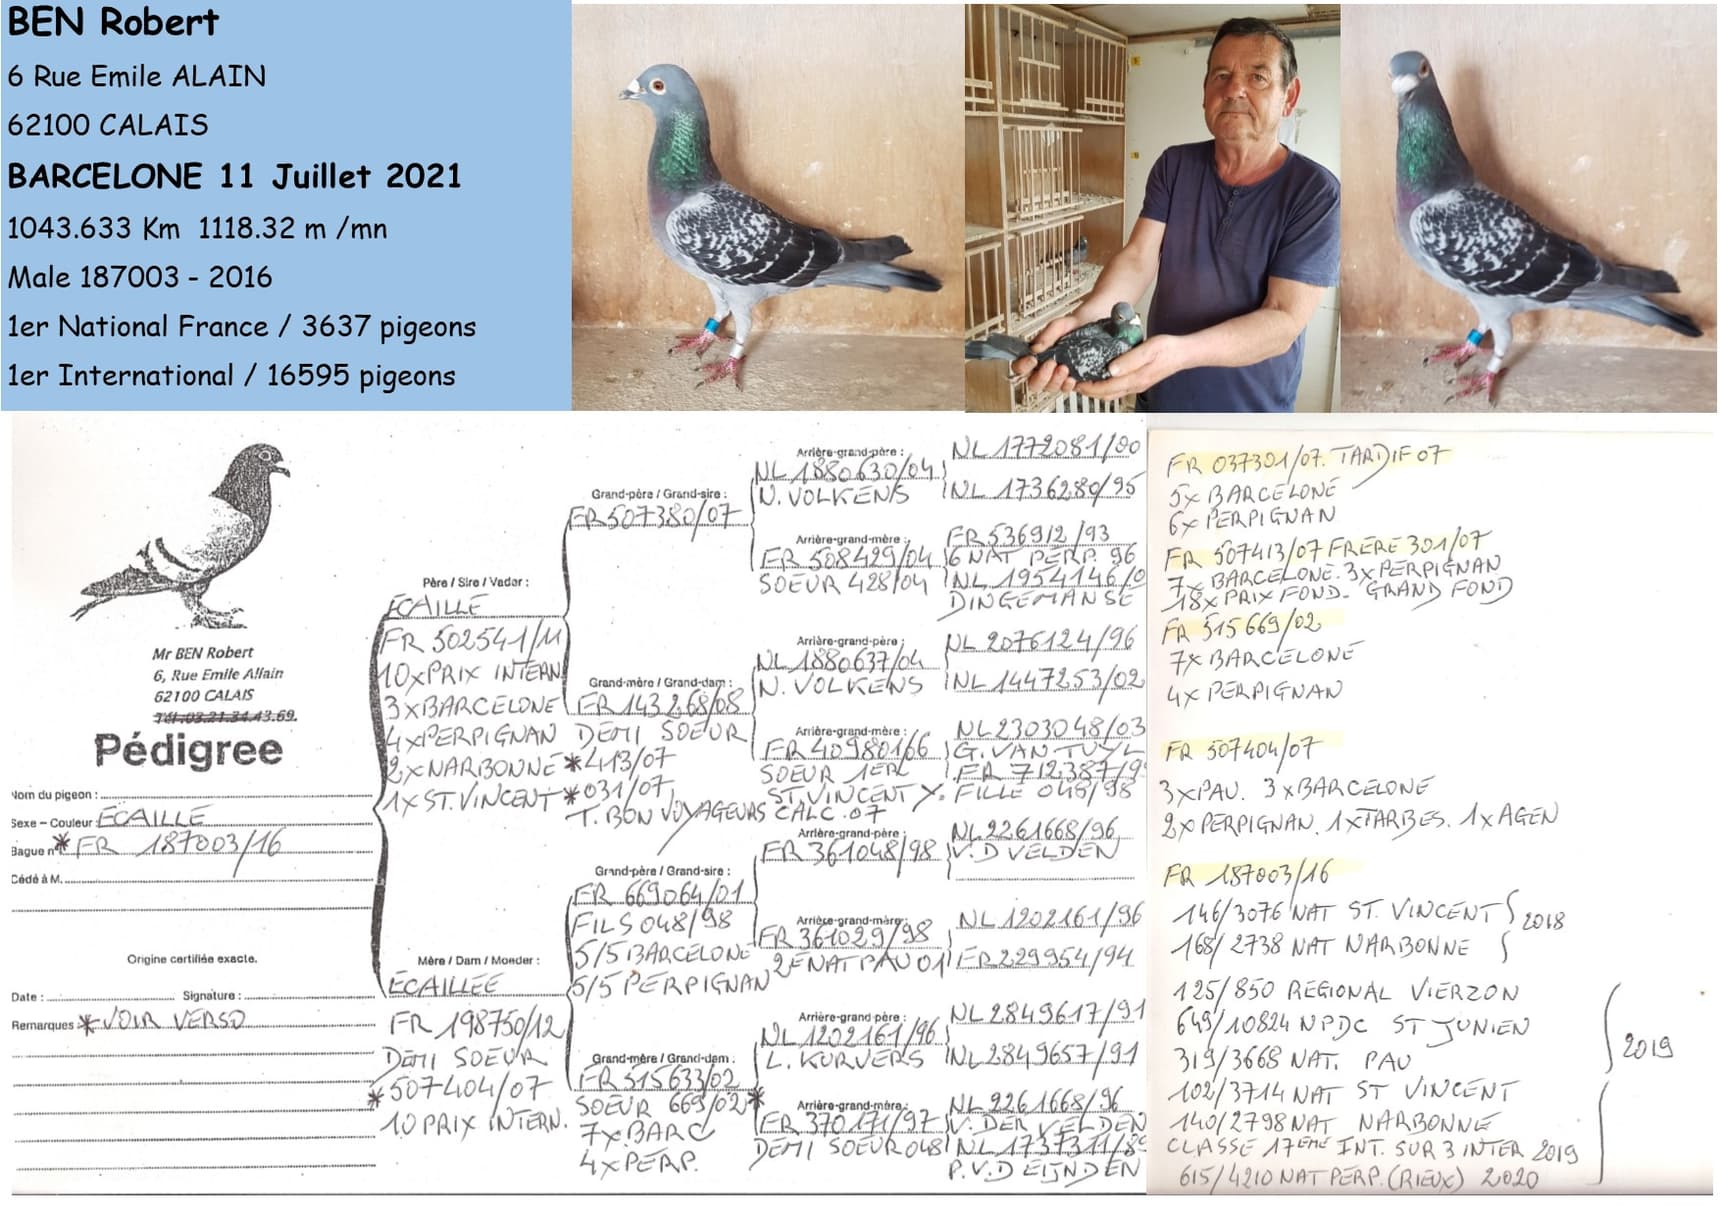 BEN Robert
6 Rue Emile ALAIN
62100 CALAIS
BARCELONE 11 Juillet 2021
1043.633 Km 1118.32 m /mn
Male 187003 - 2016
1er National France / 3637 pigeons
1er International / 16595 pigeons
Mr BEN Robert
6, Rue Emile Allain
62100 CALAIS
Tél.:03.21.34.43.69.
Pédigree
Nom du pigeon :
Sexe – Couleur : ÉCAILLÉ
Bague n° * FR 187003/16
Cédé à M.
Origine certifiée exacte.
Date : Signature :
Remarques * VOIR VERSO
Père / Sire / Vador :
ÉCAILLÉ
FR 502541/11
10xPRIX INTERN
3xBARCELONE
4xPERPIGNAN
2xNARBONNE
1xST.VINCENT
Mère / Dam / Moeder :
ECAILLÉE
FR 198750/12
DEMI SOEUR
* 507404/07
10 PRIX INTERN.
Grand-père / Grand-sire :
FR 507380/07
Grand-mère / Grand-dam :
FR 143268/08
DEMI SOEUR
* 413/07
* 031/07
T. BON VOYAGEURS CALC. 07
Grand-père / Grand-sire :
FR 669064/01
FILS 048/98
5/5 BARCELONE
5/5 PERPIGNAN
Grand-mère / Grand-dam :
FR 515633/02
SOEUR 669/02 *
7x BARC
4x PERP.
Arrière-grand-père :
NL 1880630/04
N. VOLKENS
Arrière-grand-mère :
FR 508429/04
SOEUR 428/04
Arrière-grand-père :
NL 1880637/04
N. VOLKENS
Arrière-grand-mère :
FR 409801/66
SOEUR 1ER
ST. VINCENT
Arrière-grand-père :
FR 361048/98
Arrière-grand-mère :
FR 361029/98
2E NAT PAU 01
Arrière-grand-père :
NL 1202161/96
L. KURVERS
Arrière-grand-mère :
FR 370171/97
DEMI SOEUR 048
NL 1772081/00
NL 1736280/95
FR 536912/93
6 NAT PERP. 96
NL 1954146/0
DINGEMANSE
NL 2076124/96
NL 1447253/02
NL 2303048/03
G. VAN TUYL
FR 712387/9
FILLE 048/98
NL 2261668/96
V.D VELDEN
NL 1202161/96
FR 229954/94
NL 2849617/91
NL 2849657/91
NL 2261668/96
V. DER VELDEN
NL 1737311/89
P.V.D EIJNDEN
FR 037301/07. TARDIF 07
5x BARCELONE
6x PERPIGNAN
FR 507413/07 FRERE 301/07
7x BARCELONE. 3x PERPIGNAN
18x PRIX FOND - GRAND FOND
FR 515669/02
7x BARCELONE
4x PERPIGNAN
FR 507404/07
3xPAU. 3xBARCELONE
2xPERPIGNAN. 1xTARBES. 1xAGEN
FR 187003/16
146/3076 NAT ST. VINCENT
168/2738 NAT NARBONNE
2018
125/850 REGIONAL VIERZON
649/10824 NPDC ST JUNIEN
319/3668 NAT. PAU
102/3714 NAT ST VINCENT
140/2798 NAT NARBONNE
CLASSE 17EME INT. SUR 3 INTER 2019
2019
615/4210 NAT PERP. (RIEUX) 2020